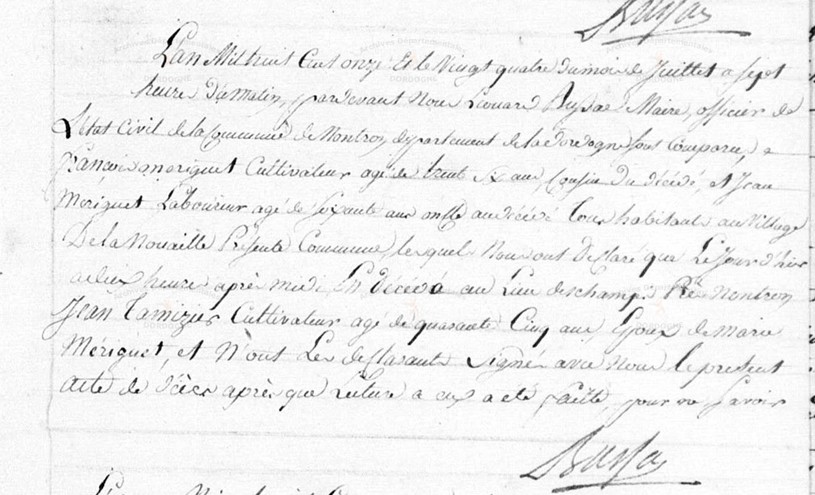 L'an Mil huit Cent onze Et le Vingt quatre du mois de Juillet a sept
heure Du matin, pardevant Nous Maire, officier de
Létat Civil de la Commune de Montron, departement de la dordogne sont Comparu,
françois meriguet Cultivateur agé de trente six ans, Cousin du décédé, et Jean
Mériguet Laboureur agé de soixante ans oncle au décédé tous habitants au Village
De la Nouaille Présente Commune, lesquels Nous ont Déclaré que Le Jour d'hier
a deux heure après midi Est Décédé au Lieu deschamps Nontron
Jean Tamizier Cultivateur agé de quarante Cinq ans, Epoux de Marie
Mériguet, et N'ont Les declarants Signés avec Nous le present
acte de décès après que Lecture a eux a eté faitte, pour ne Savoir